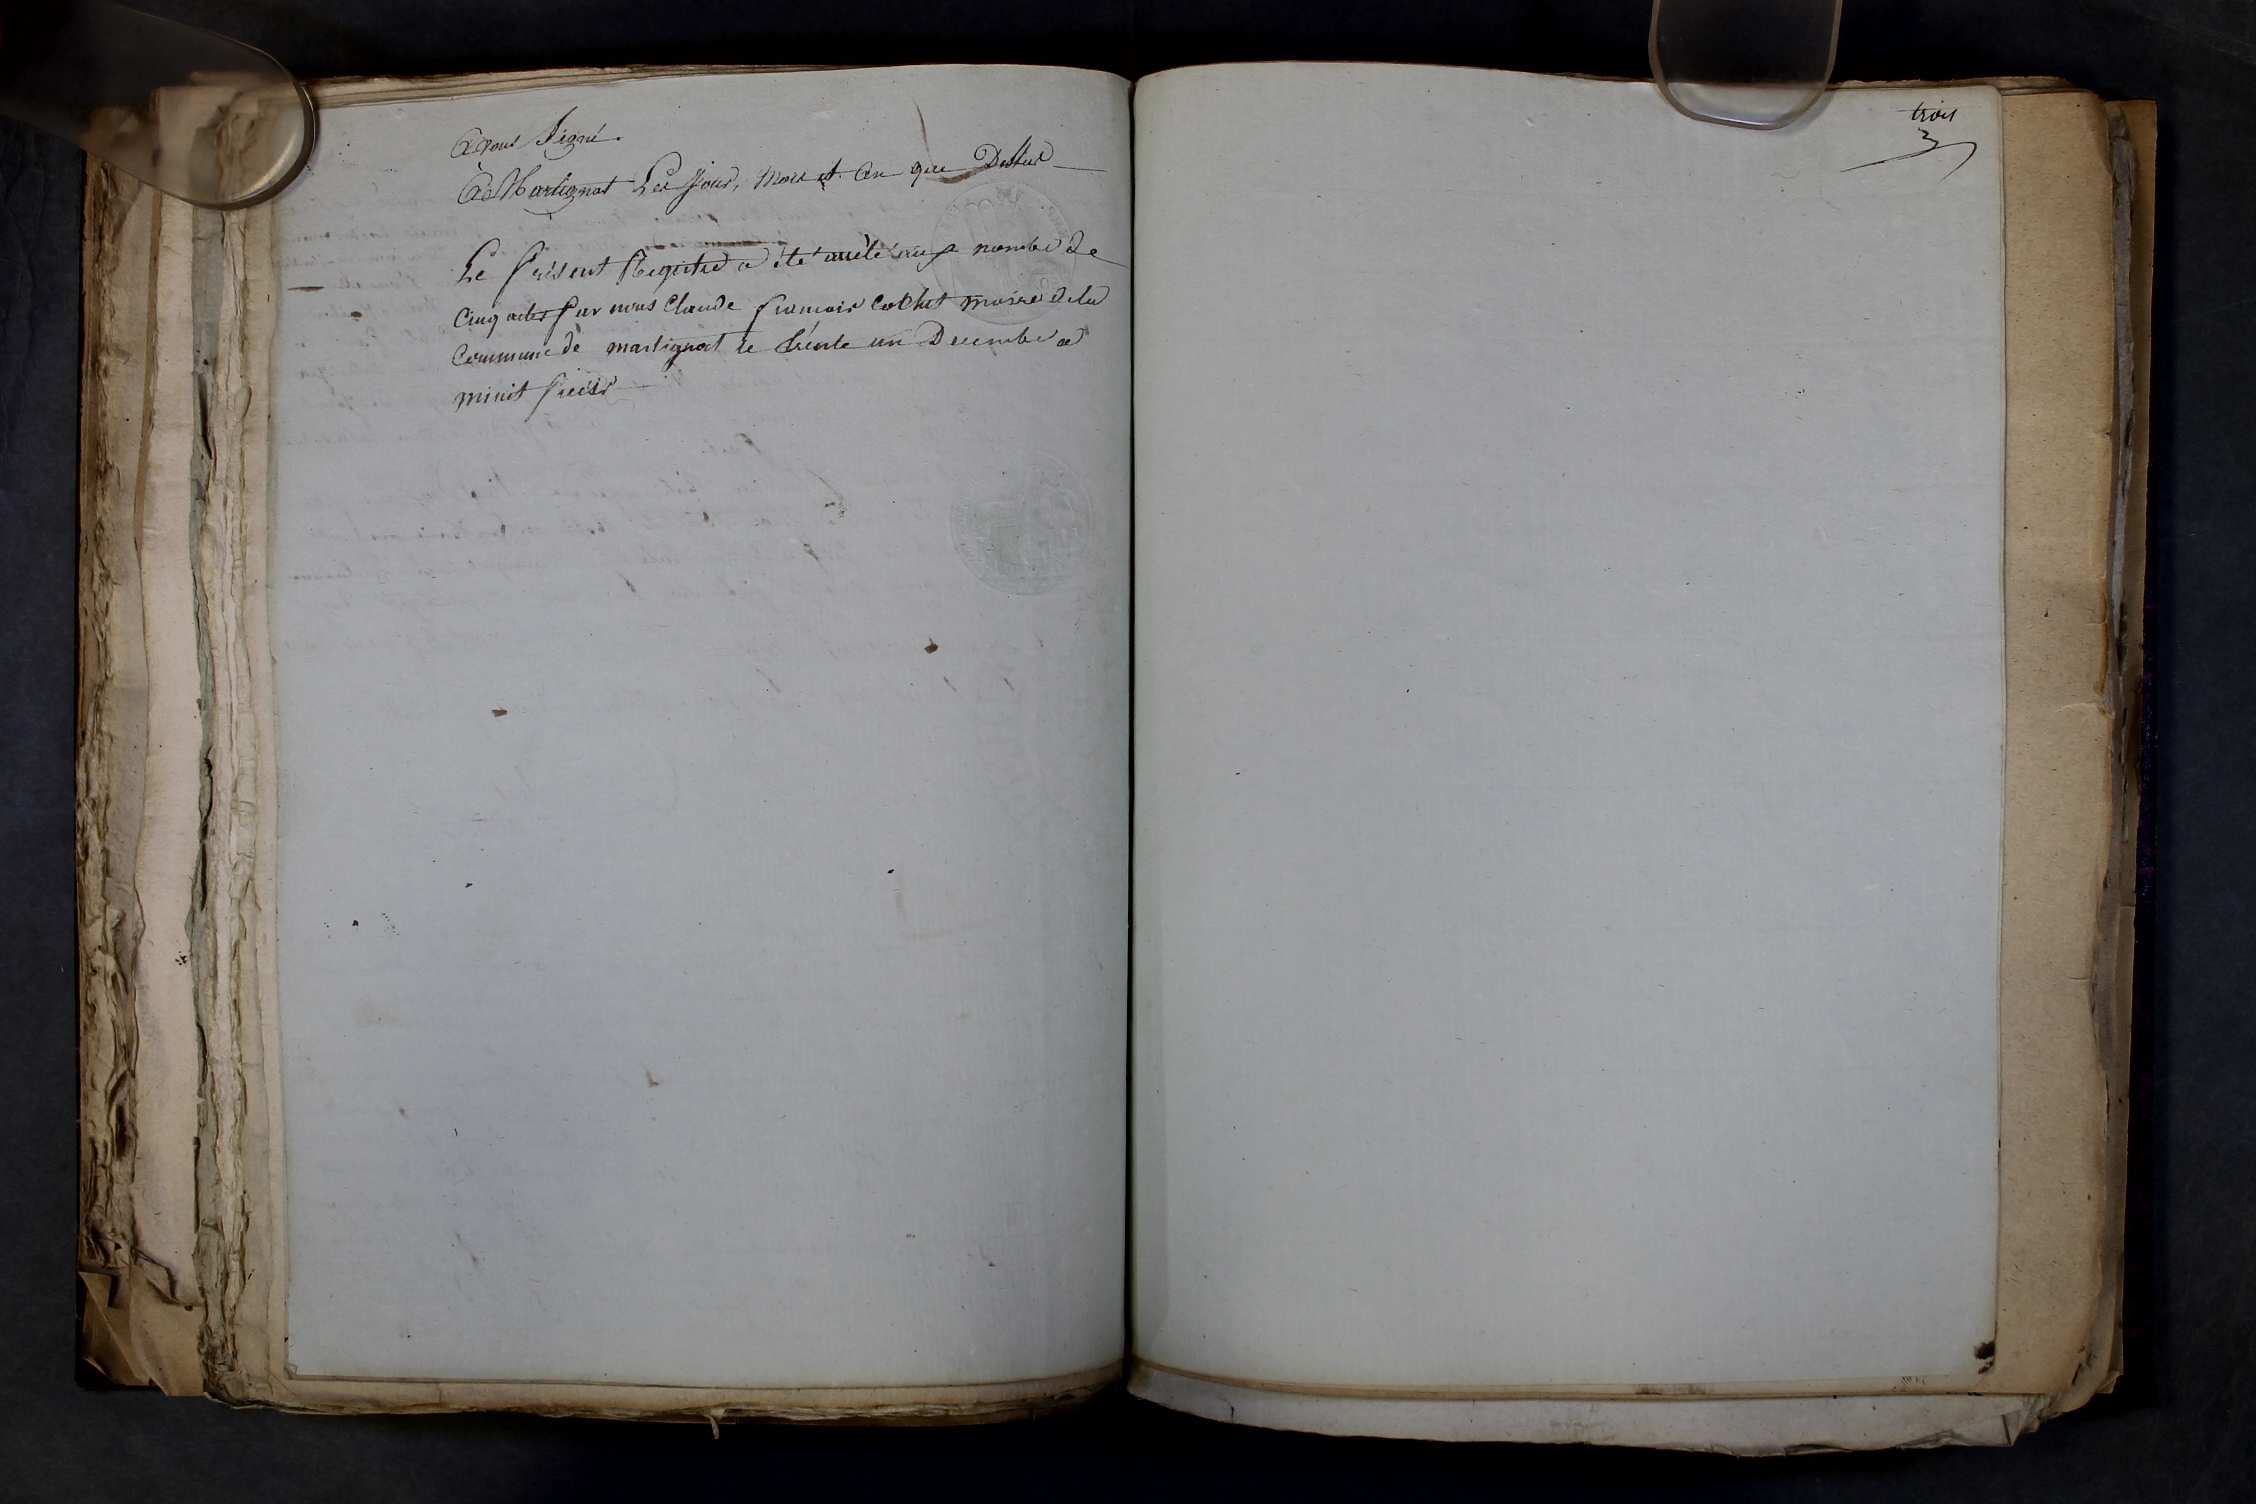 avons Signé.
à Martignat Les Jour, Mois et an que Dessus
Le présent Registre a été arrêté au nombre de
cinq actes par nous Claude françois Collet maire de la
Commune de martignat le trente un Decembre à
minit précis
trois
3